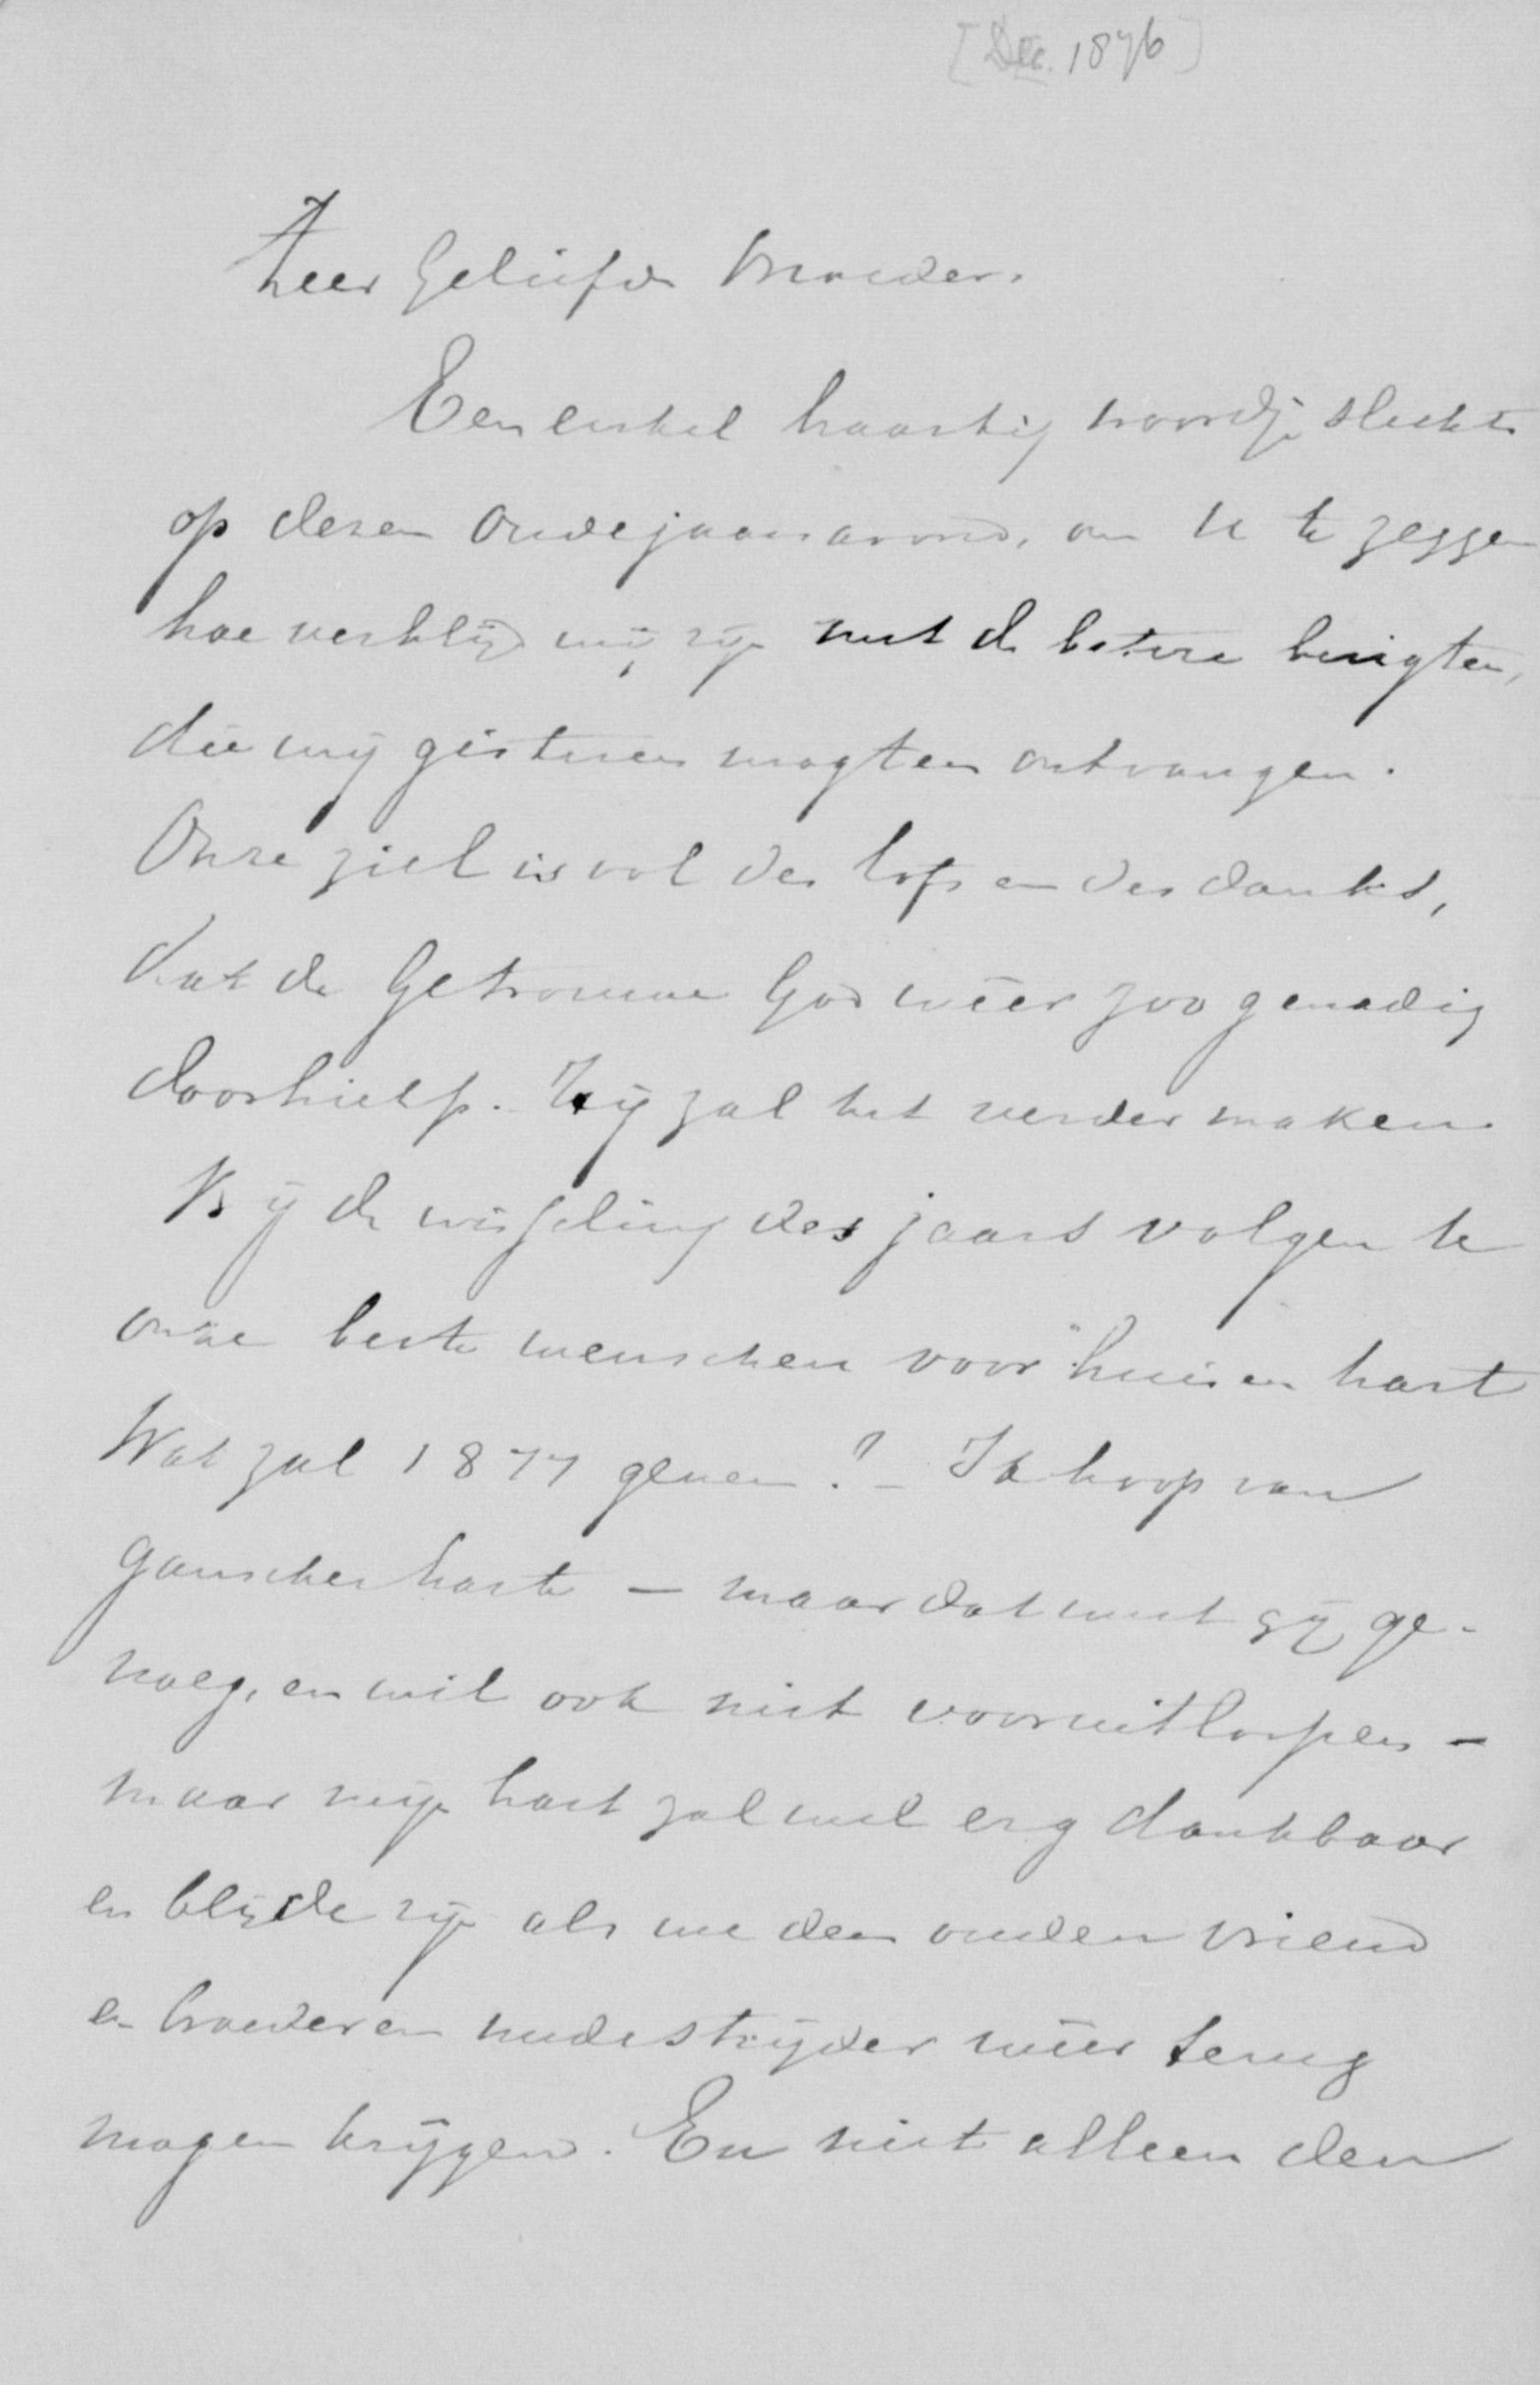 [Dec. 1876]
Zeer Geliefde Broeder.
Een enkel haastig woordje slechts
op dezen Oudejaarsavond, om U te zeggen
hoe verblijd wij zijn met de betere berigten,
die wij gisteren mogten ontvangen.
Onze ziel is vol des lofs en des danks,
dat de Getrouwe God wéér zoo genadig
doorhielp. Hij zal het verder maken.
Bij de wisseling des jaars volgen U
onze beste wenschen voor huis en hart
Wat zal 1877 geven? – Ik hoop van
ganscher harte – maar dat weet gij ge-
noeg, en wil ook niet vooruitloopen –
maar mijn hart zal wel erg dankbaar
en blijde zijn als we den ouden vriend
en broeder en medestrijder wéér terug
mogen krijgen. En niet alleen den